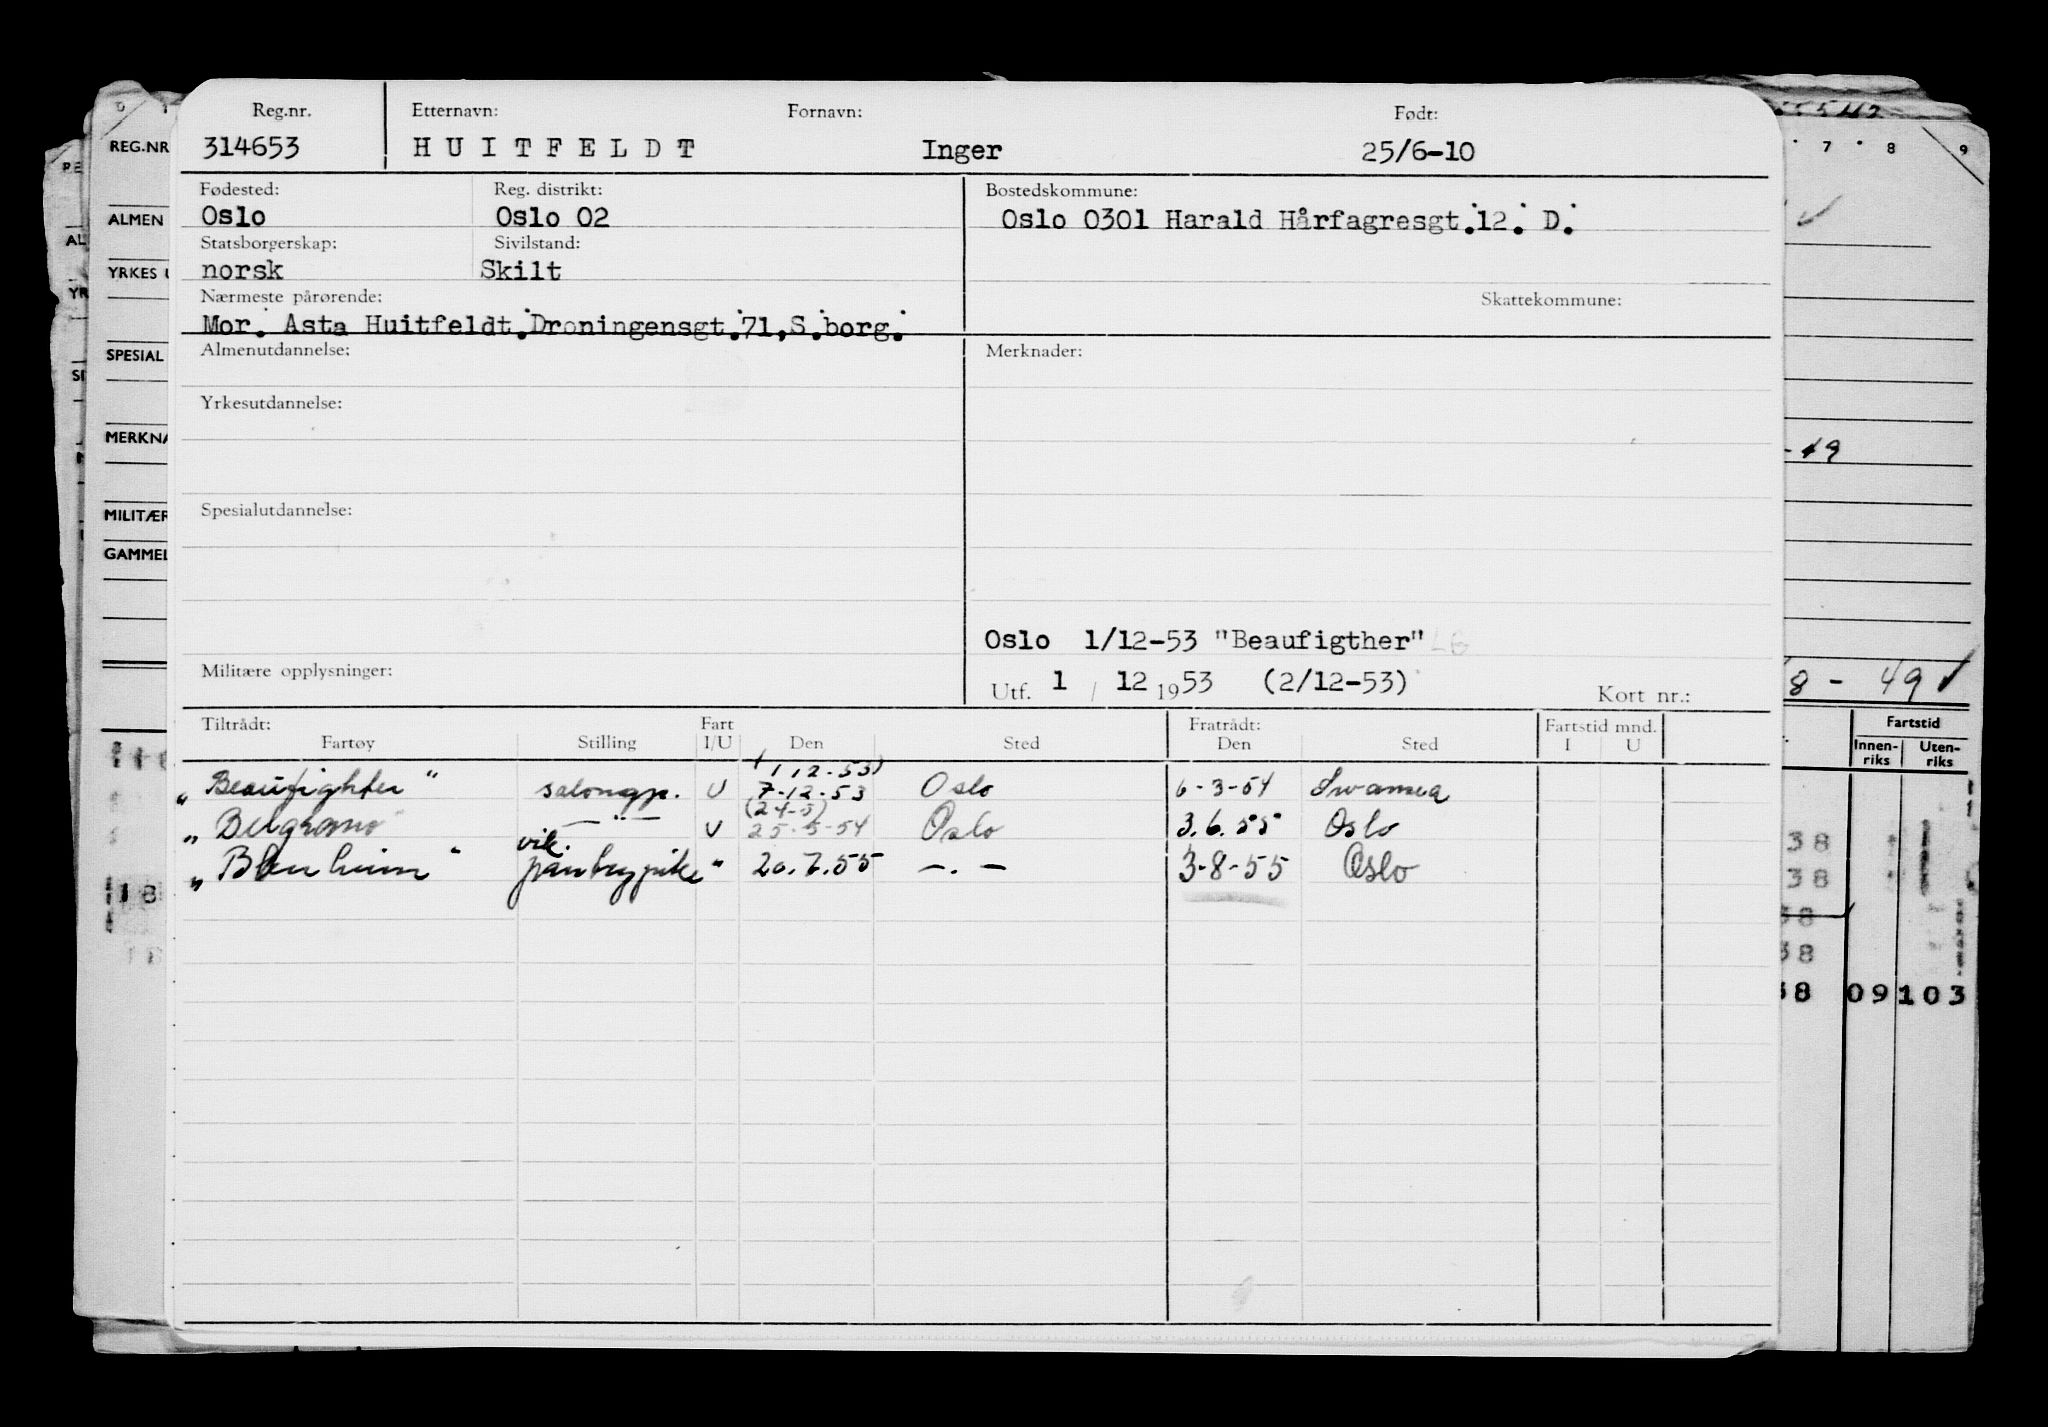 Reg.nr. Etternavn: Fornavn: Født:
314653 HUITFELDT Inger 25/6-10
Fødested: Reg. distrikt: Bostedskommune:
Oslo Oslo 02 Oslo 0301 Harald Hårfagresgt.12. D.
Statsborgerskap: Sivilstand:
norsk Skilt
Nærmeste pårørende: Skattekommune:
Mor. Asta Huitfeldt.Droningensgt.71,S.borg.
Almenutdannelse: Merknader:
Yrkesutdannelse:
Spesialutdannelse:
Oslo 1/12-53 "Beaufigther"
Militære opplysninger: Utf. 1 / 12 1953 (2/12-53) Kort nr.:
Tiltrådt: Fart Fratrådt: Fartstid mnd.
Fartøy Stilling I/U Den Sted Den Sted I U
(1 12-53)
„Beaufighter" salongp. U 7-12-53 Oslo 6-3-54 Swansea
(24-5)
„Belgrano" —"— U 25-5-54 Oslo 3.6.55 Oslo
vik.
„Blenheim" pantrypike " 20.7.55 —.— 3-8-55 Oslo
REG.NR
ALMEN
YRKES
SPESIAL
MERKNA
MILITÆR
GAMMEL
18
7 8 9
-49
8 - 49
Fartstid
Innen-riks Uten-riks
38
38
38
38
38 09 103